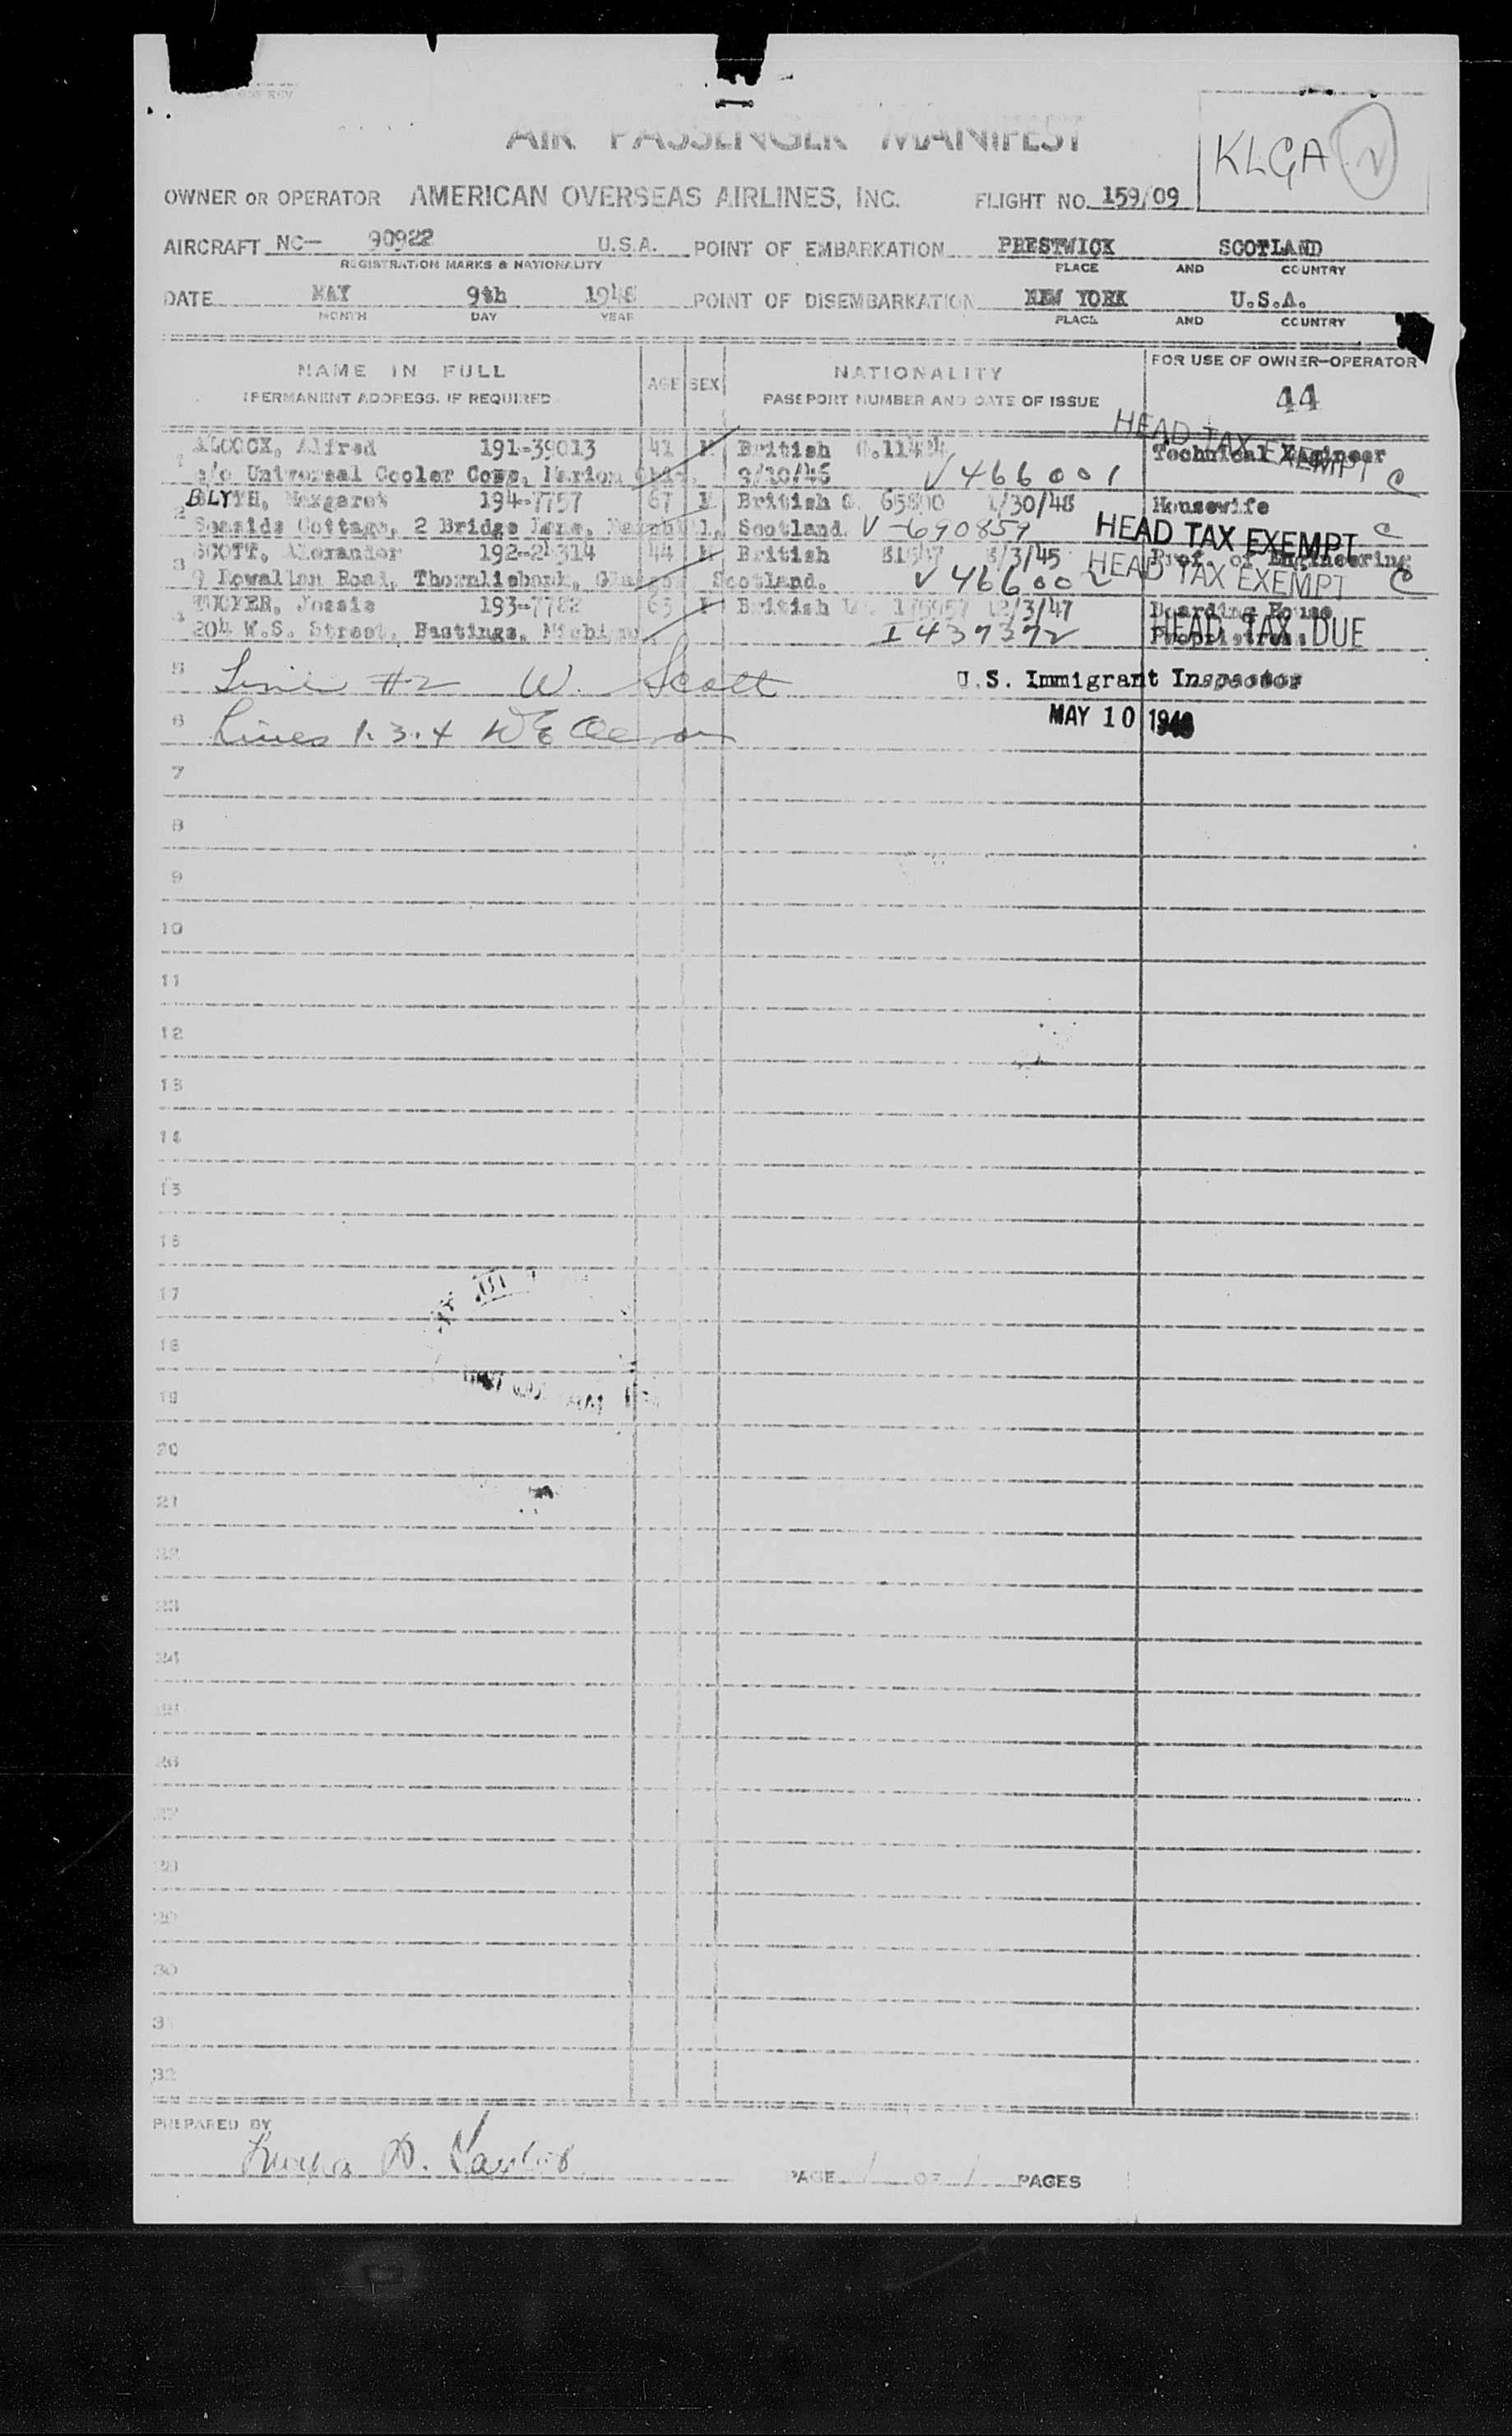 AIR PASSENGER MANIFEST
KLGA 2
OWNER OR OPERATOR AMERICAN OVERSEAS AIRLINES, INC. FLIGHT NO. 159/09
AIRCRAFT NC— 90922 U.S.A. POINT OF EMBARKATION PRESTWICK SCOTLAND
REGISTRATION MARKS & NATIONALITY PLACE AND COUNTRY
DATE MAY 9th 1948 POINT OF DISEMBARKATION NEW YORK U.S.A.
MONTH DAY YEAR PLACE AND COUNTRY
NAME IN FULL AGE SEX NATIONALITY FOR USE OF OWNER-OPERATOR
(PERMANENT ADDRESS, IF REQUIRED PASSPORT NUMBER AND DATE OF ISSUE 44
HEAD TAX EXEMPT
1 ALCOCK, Alfred 191-39013 41 M British C.11424 Technical Engineer
c/o Universal Cooler Corp, Marion 9/10/46 V 466001 C
2 BLYTH, Margaret 194-7757 67 F British 1/30/48 Housewife
Seaside Cottage, 2 Bridge Lane, Scotland. V-690859 HEAD TAX EXEMPT C
3 SCOTT, Alexander 192-24314 44 M British 3/3/45 Prof. of Engineering
9 Rowallan Road, Thornliebank, Glasgow Scotland. V 466002 HEAD TAX EXEMPT C
4 Jessie 193-7782 65 F British 12/3/47 Boarding House
204 W.S. Street, Hastings, Michigan I 439392 Proprietress HEAD TAX DUE
5 Line #2 W. Scott U.S. Immigrant Inspector
6 Lines 1.3.4 MAY 10 1948
7
8
9
10
11
12
13
14
15
16
17
18
19
20
21
22
23
24
25
26
27
28
29
30
31
32
PREPARED BY
PAGE 1 OF 1 PAGES